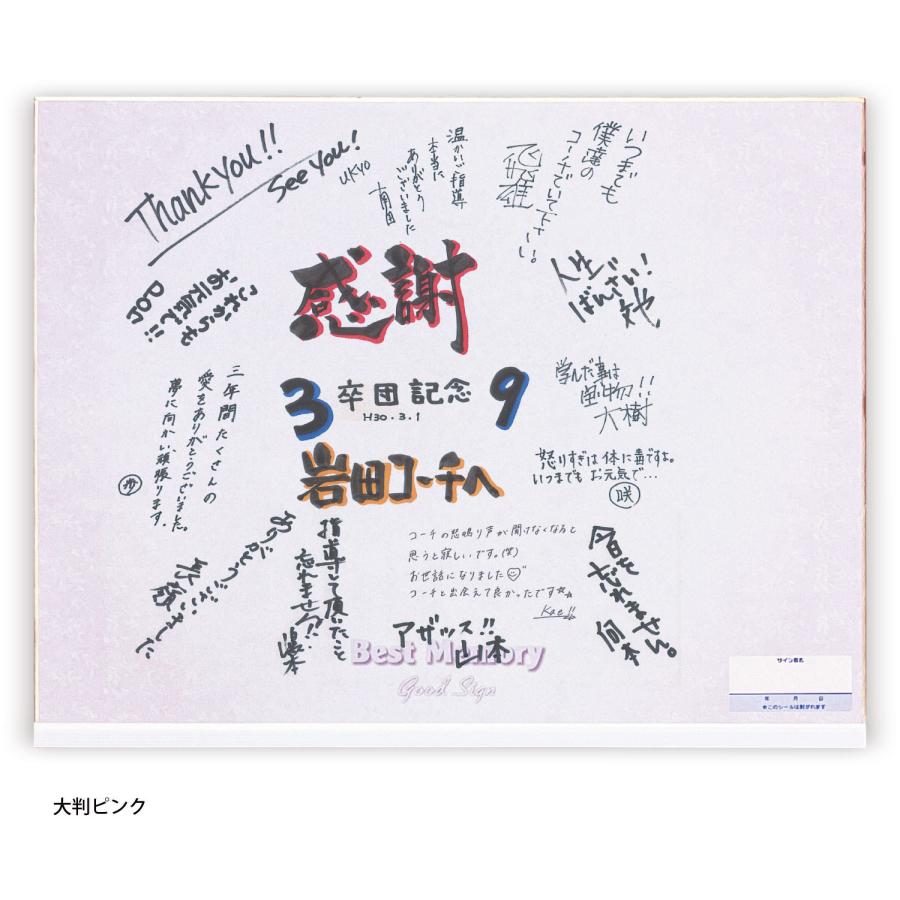 Thank you!!
See you!
UKYO
温かいご指導
本当に
ありがとう
ございました
いつまでも
僕達の
コーチでいて下さい。
飛雄
これからも
お元気で!!
感謝
人生
ばんざい!
3 卒団記念 9
H30.3.1
岩田コーチへ
学んだ事は
宝物!!
大樹
三年間たくさんの
愛をありがとうございました。
夢に向かい頑張ります。
歩
怒りすぎは体に毒ですよ。
いつまでもお元気で…
咲
ありがとうございました
指導して頂いたこと
忘れません!!
コーチの怒鳴り声が聞けなくなると
思うと寂しいです。(笑)
お世話になりました
コーチと出会えて良かったです☆
Kae!!
今日を忘れません。
アザッス!!
山本
Best Memory
Good Sign
サイン者名
年 月 日
★このシールは剥がれます
大判ピンク